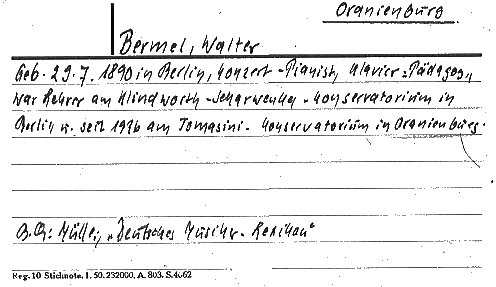 Oranienburg
Bermel, Walter
Geb. 29.7.1890 in Berlin, Konzert-Pianist, Klavier-Pädagog,
war Lehrer am Klindworth-Scharwenka-Konservatorium in
Berlin u. seit 1926 am Tomasini-Konservatorium in Oranienburg.
B.Qu: Müller, „Deutsches Musiker-Lexikon“
Reg. 10 Stichnote. 1. 50. 232000. A. 803. S. 4062